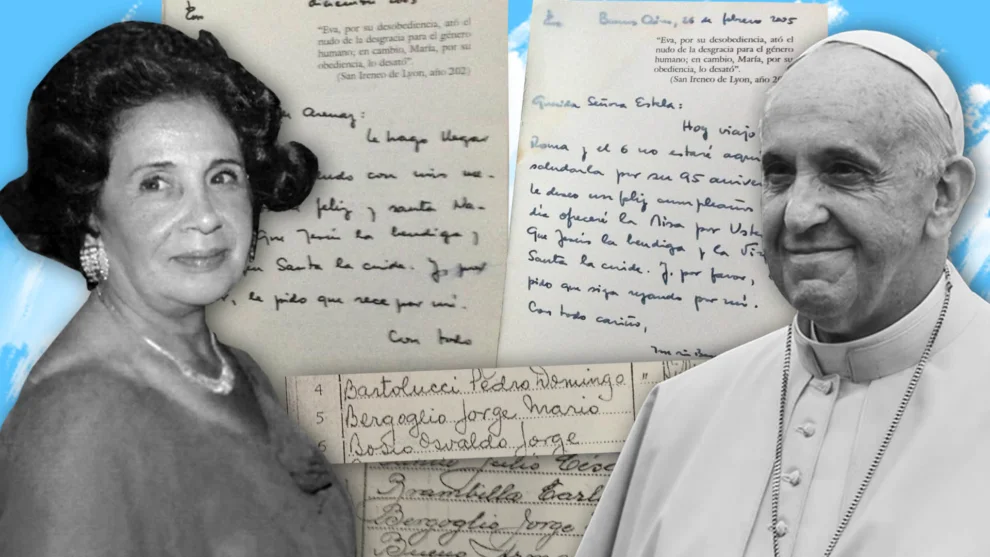 diciembre 2003
"Eva, por su desobediencia, ató el
nudo de la desgracia para el género
humano; en cambio, María, por su
obediencia, lo desató".
(San Ireneo de Lyon, año 202)
Arenaz:
Le hago llegar
con mis
feliz y santa Na-
Que Jesús la bendiga y
Santa la cuide. Y, por
le pido que rece por mí.
Con todo
Buenos Aires, 26 de febrero 2005
"Eva, por su desobediencia, ató el
nudo de la desgracia para el género
humano; en cambio, María, por su
obediencia, lo desató".
(San Ireneo de Lyon, año 20
Querida Señora Estela:
Hoy viajo
Roma y el 6 no estaré aquí
saludarla por su 95 aniver
le deseo un feliz cumpleaños
día ofreceré la Misa por Uste
Que Jesús la bendiga y la Vir
Santa la cuide. Y, por favor,
pido que siga rezando por mí.
Con todo cariño,
4 Bartolucci Pedro Domingo "
5 Bergoglio Jorge Mario
6 Bosio Osvaldo Jorge
Julio Cés
Brambilla Carl
Bergoglio Jorge
Bueno